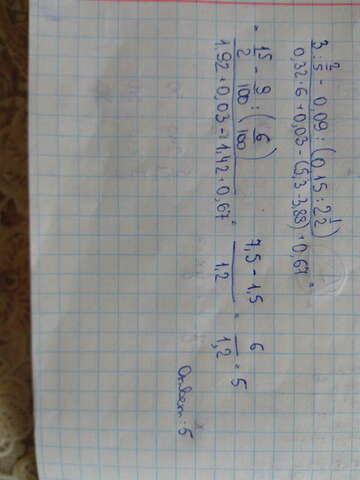 3 : 2/5 - 0,09 : (0,15 : 2 1/2)
0,32·6+0,03-(5,3-3,88)+0,67 =
= 15/2 - 9/100 : (6/100)
1,92+0,03-1,42+0,67 =
7,5-1,5
1,2 =
6
1,2 = 5
Ответ: 5